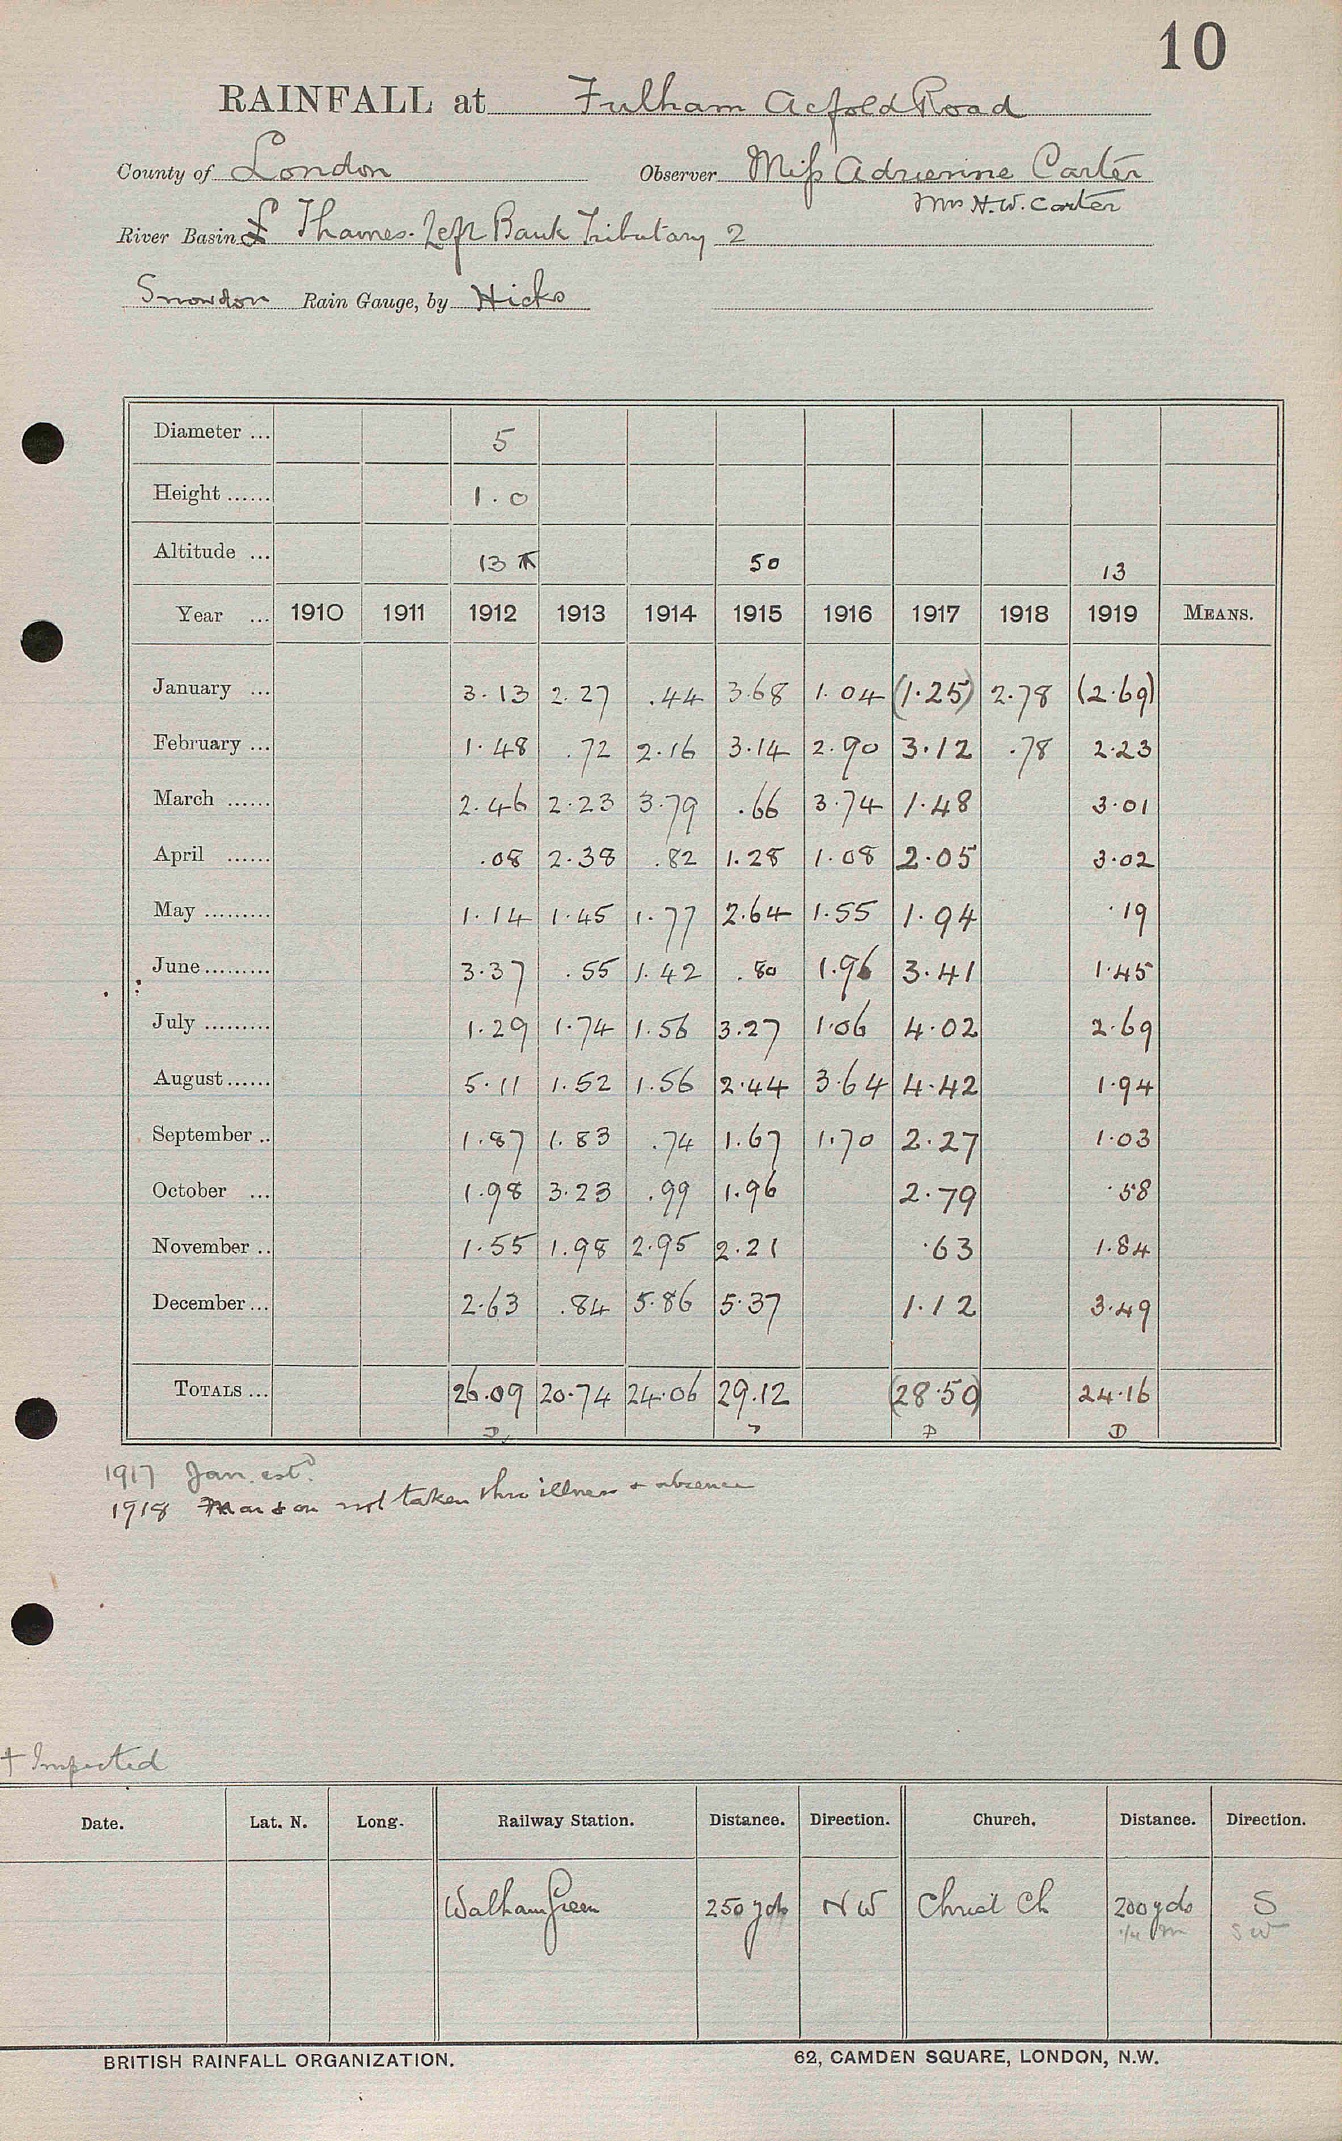 10
RAINFALL at Fulham Acfold Road
County of London Observer Miss Adrienne Carter
Mrs H.W. Carter
River Basin Thames. Left Bank Tributary 2
Snowdon Rain Gauge, by Hicks
Diameter ... 5
Height ...... 1.0
Altitude ... 13 50 13
Year ... 1910 1911 1912 1913 1914 1915 1916 1917 1918 1919 MEANS.
January ... 3.13 2.27 .44 3.68 1.04 (1.25) 2.78 (2.69)
February ... 1.48 .72 2.16 3.14 2.90 3.12 .78 2.23
March ...... 2.46 2.23 3.79 .66 3.74 1.48 3.01
April ...... .08 2.38 .82 1.28 1.08 2.05 3.02
May ......... 1.14 1.45 1.77 2.64 1.55 1.94 .19
June ......... 3.37 .55 1.42 .80 1.96 3.41 1.45
July ......... 1.29 1.74 1.56 3.27 1.06 4.02 2.69
August ...... 5.11 1.52 1.56 2.44 3.64 4.42 1.94
September .. 1.87 1.83 .74 1.67 1.70 2.27 1.03
October ... 1.98 3.23 .99 1.96 2.79 .58
November .. 1.55 1.98 2.95 2.21 .63 1.84
December ... 2.63 .84 5.86 5.37 1.12 3.49
TOTALS ... 26.09 20.74 24.06 29.12 (28.50) 24.16
D D D
1917 Jan. estd.
1918 Mar & on not taken thro illness & absence
+ Inspected
Date. Lat. N. Long. Railway Station. Distance. Direction. Church. Distance. Direction.
Walham Green 250 yds NW Christ Ch 200 yds S
1/4 m SW
BRITISH RAINFALL ORGANIZATION. 62, CAMDEN SQUARE, LONDON, N.W.